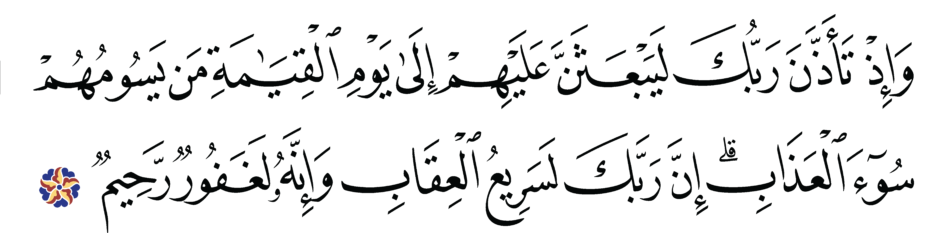 وَإِذْ تَأَذَّنَ رَبُّكَ لَيَبْعَثَنَّ عَلَيْهِمْ إِلَىٰ يَوْمِ ٱلْقِيَـٰمَةِ مَن يَسُومُهُمْ
سُوٓءَ ٱلْعَذَابِ ۗ إِنَّ رَبَّكَ لَسَرِيعُ ٱلْعِقَابِ وَإِنَّهُۥ لَغَفُورٌ رَّحِيمٌ